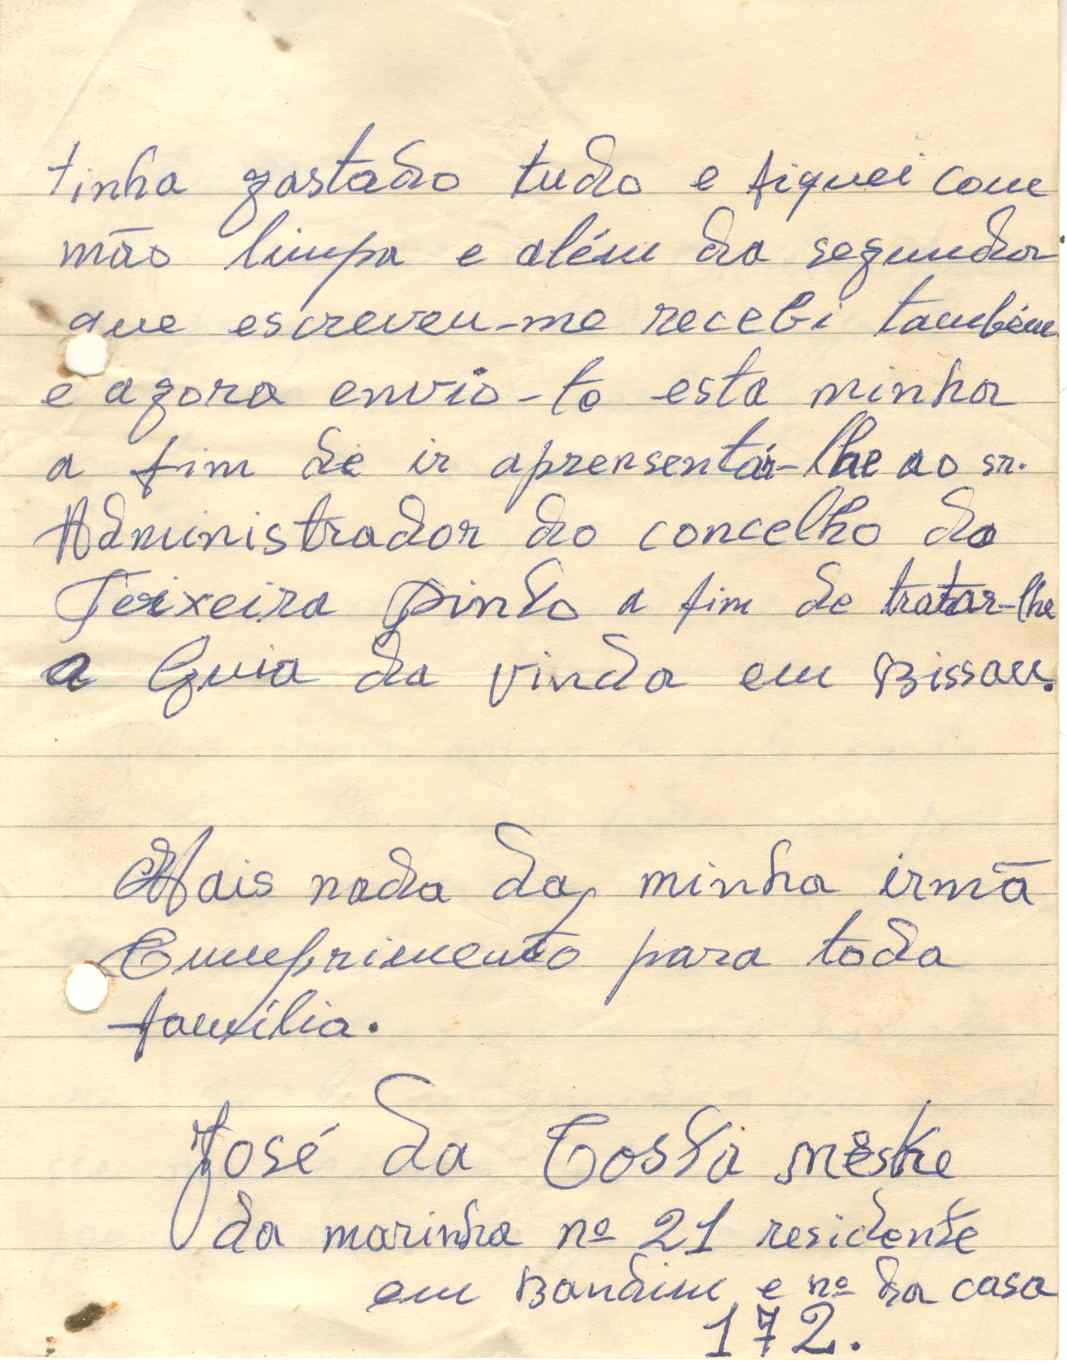 tinha gastado tudo e fiquei com
mão limpa e além da segunda
que escreveu-me recebi também
e agora envio-to esta minha
a fim de ir aprensentár-lhe ao sr.
Administrador do concelho do
Teixeira Pinto a fim de tratar-lhe
a Guia da vinda em Bissau.
Mais nada da minha irmã
Cumprimento para toda
família.
José da Costa
da marinha nº 21 residente
em Bandim e nº da casa
172.